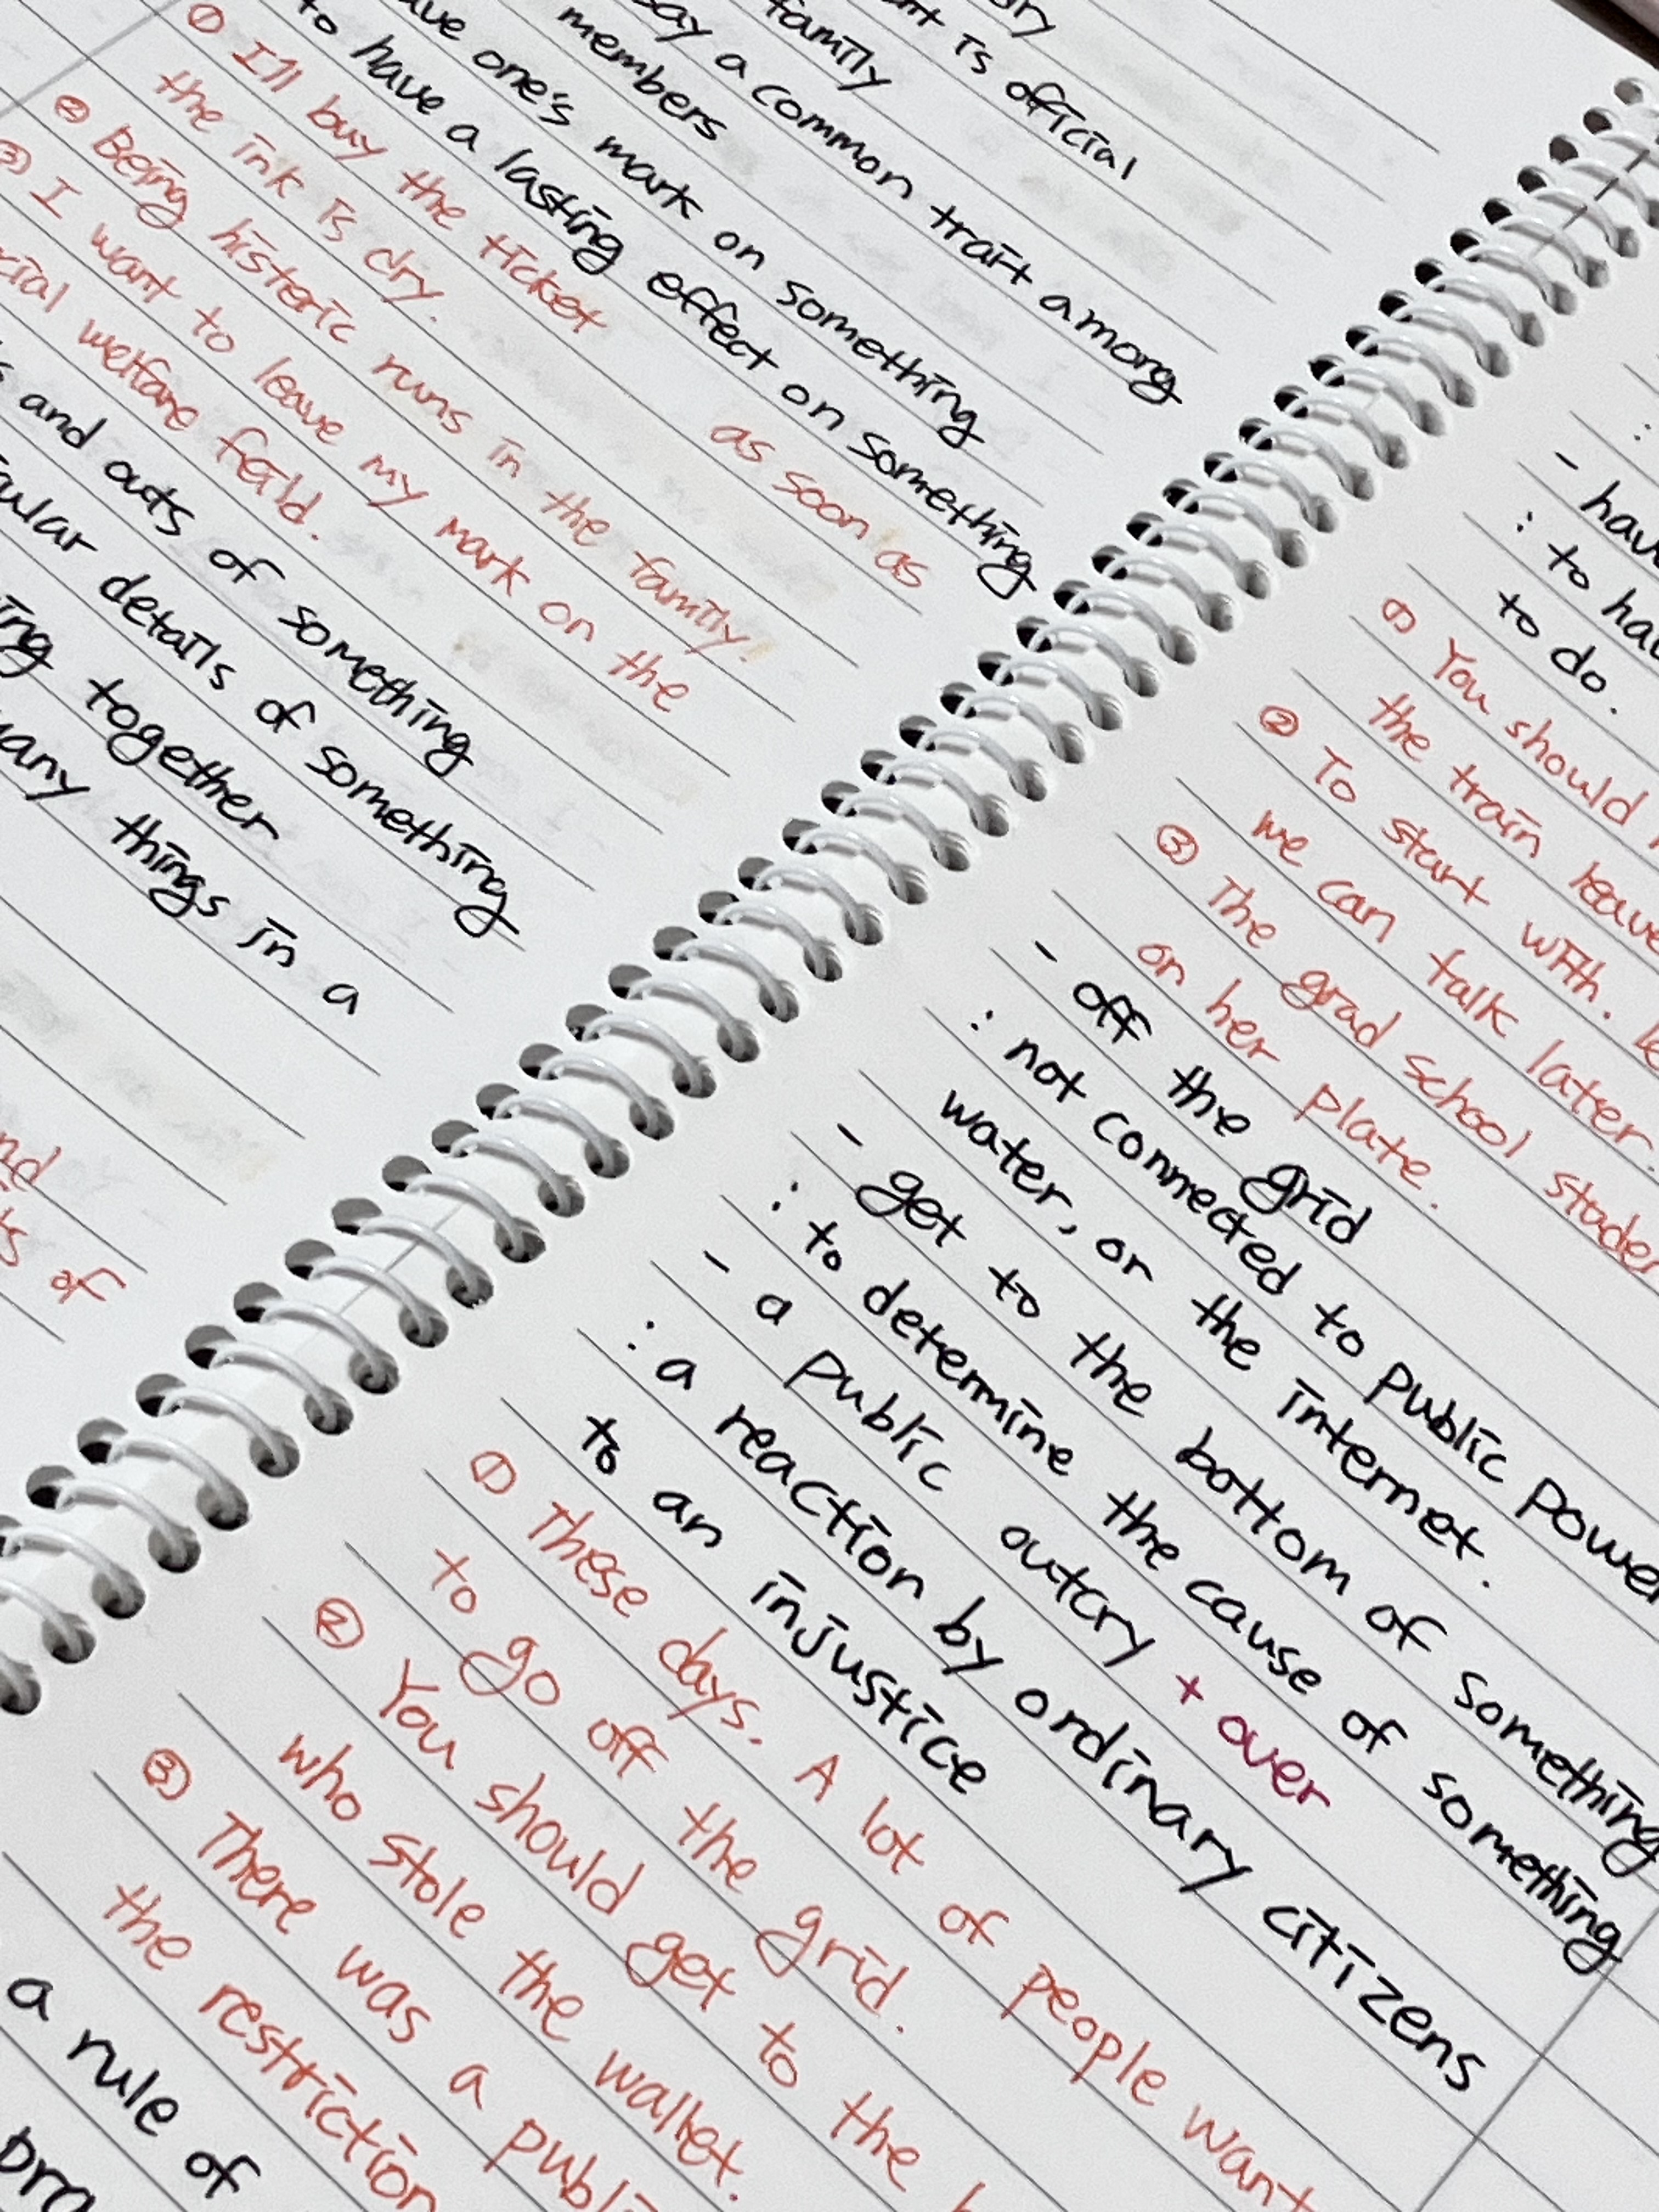 is oficial
family
say a common trait among
members
one's mark on something
to have a lasting effect on something
① I'll buy the ticket as soon as
the ink is dry.
② Being histeric runs in the family!
③ I want to leave my mark on the
welfare feild.
and outs of something
details of something
together
things in a
of
: to
to do.
① You should
the train
② To start with.
we can talk later.
③ The grad school
on her plate.
- off the grid
: not connected to public
water, or the internet.
- get to the bottom of something
: to determine the cause of something
- a public outcry + over
: a reaction by ordinary citizens
to an injustice
① These days. A lot of people want
to go off the grid.
② You should get to the
who stole the wallet.
③ There was a
the restriction
a rule of